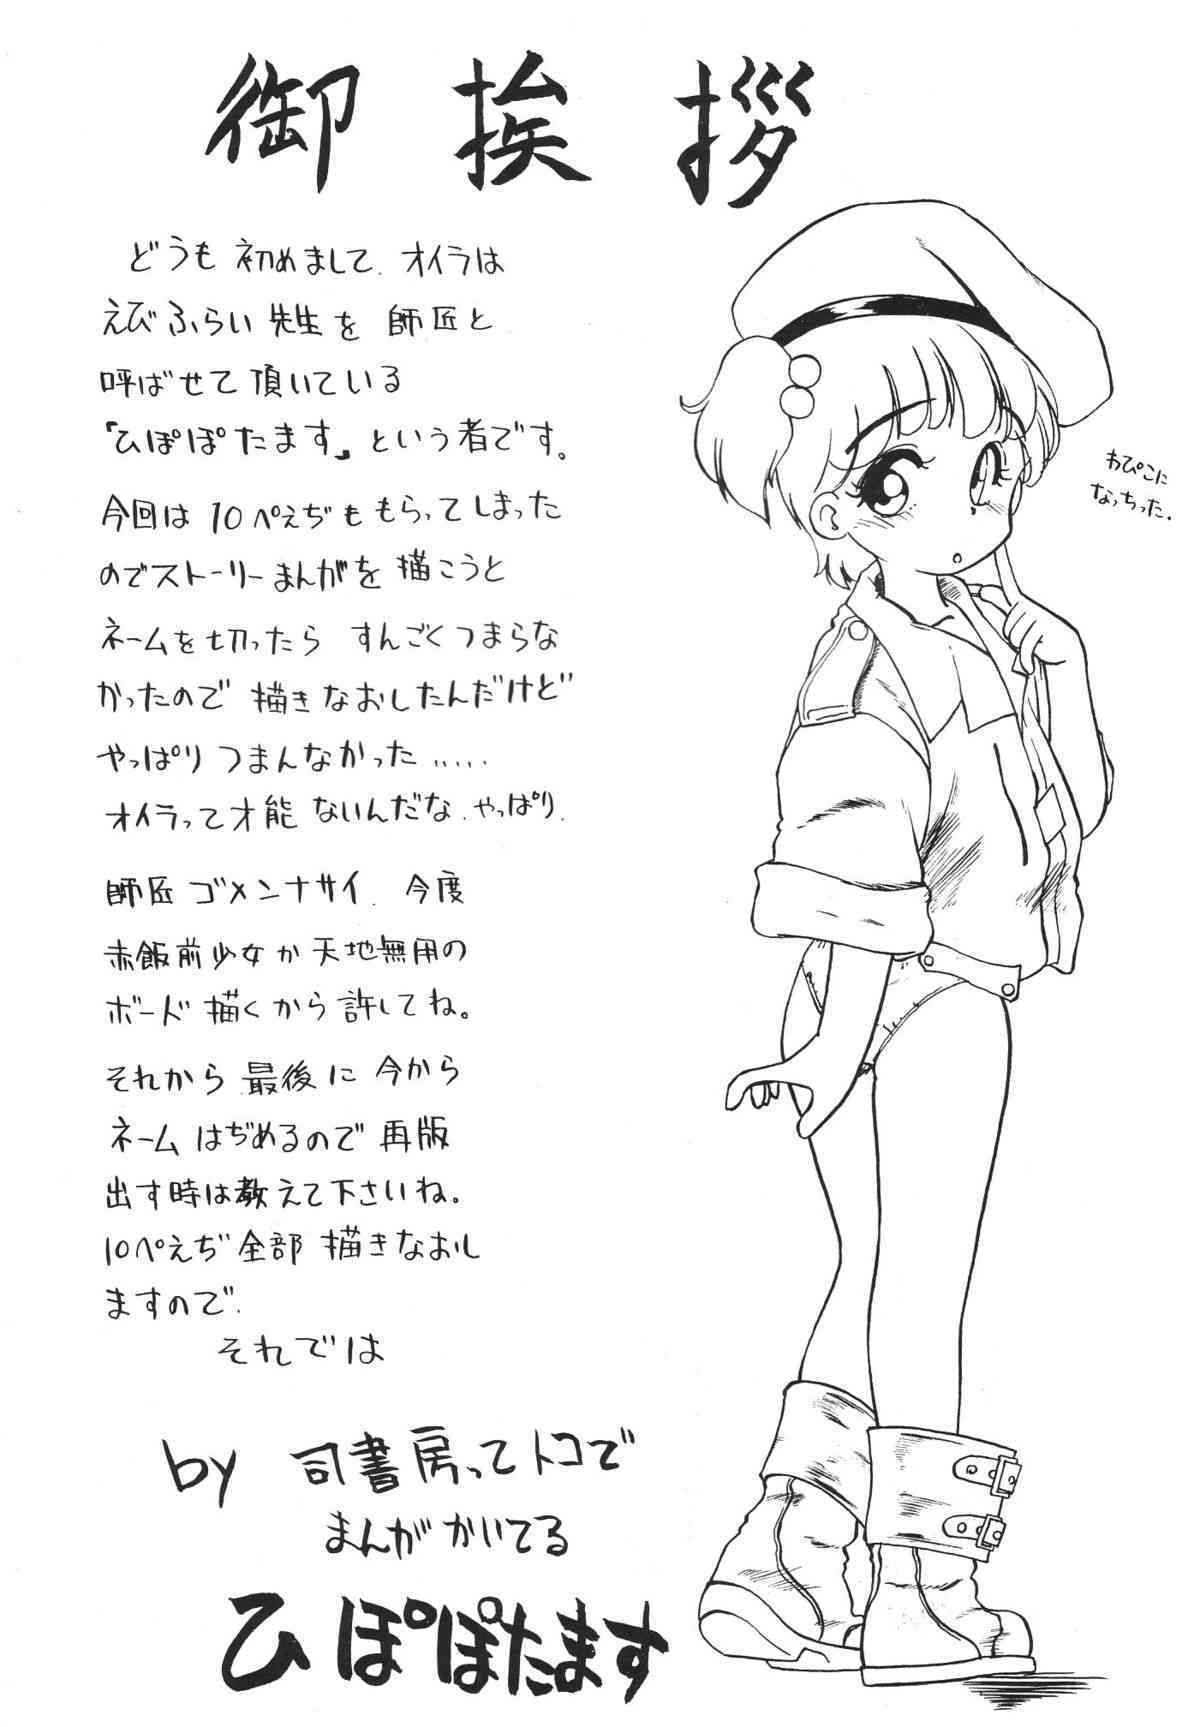 御挨拶
どうも 初めまして. オイラは
えびふらい 先生を 師匠と
呼ばせて 頂いている
『ひぽぽたます』という者です。
今回は 10ぺえぢも もらってしまった
のでストーリーまんがを 描こうと
ネームを 切ったら すんごくつまらな
かったので 描きなおしたんだけど
やっぱり つまんなかった .....
オイラって才能 ないんだな. やっぱり.
師匠 ゴメンナサイ. 今度
赤飯前少女か 天地無用の
ボード 描くから 許してね。
それから 最後に 今から
ネーム はぢめるので 再版
出す時は教えて下さいね。
10ぺえぢ 全部 描きなおし
ますので.
それでは
by 司書房ってトコで
まんが かいてる
ひぽぽたます
わぴこに
なっちった.